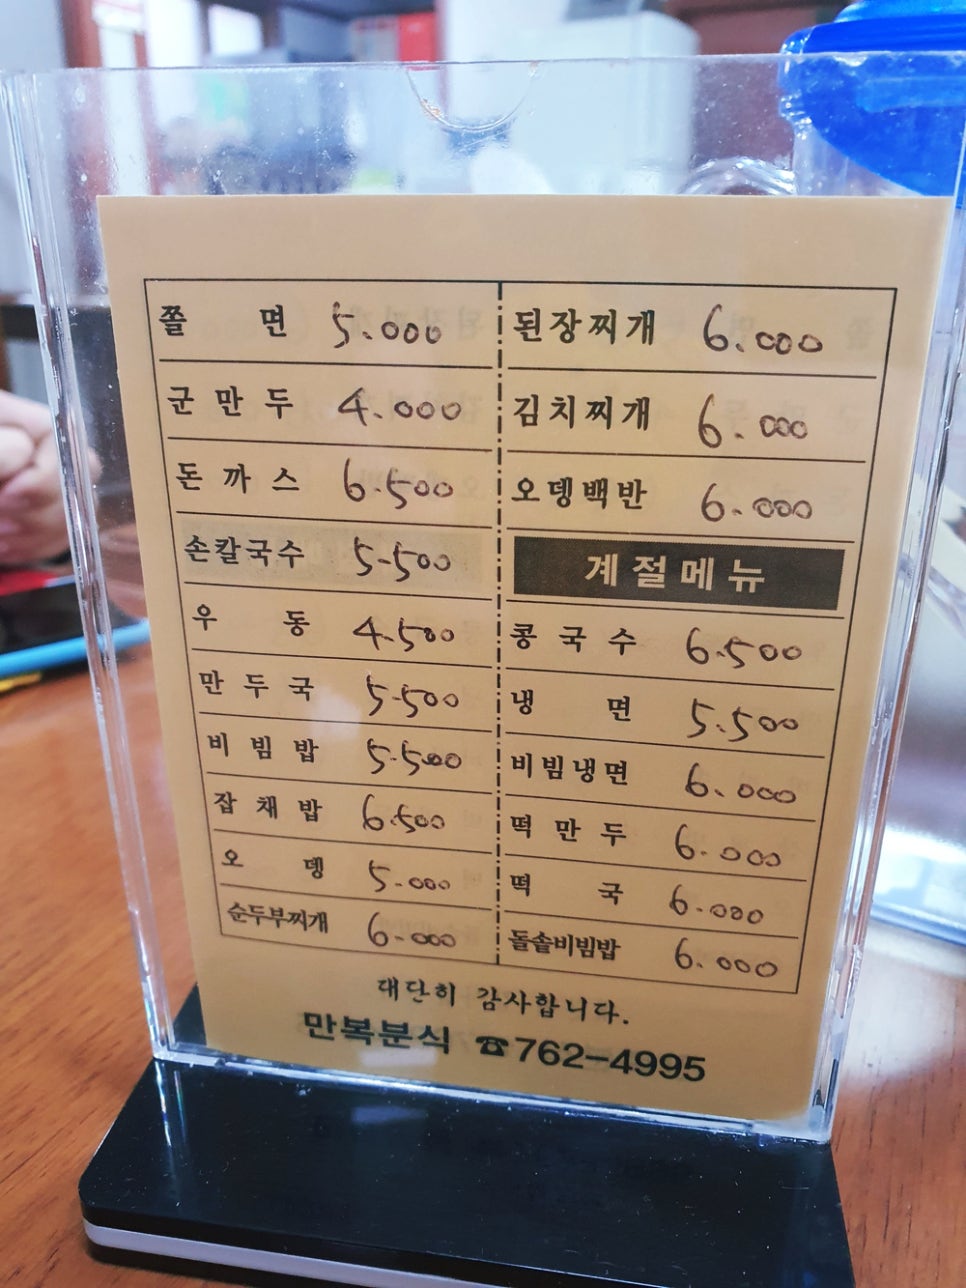 쫄 면 5.000
군 만 두 4.000
돈 까 스 6.500
손칼국수 5.500
우 동 4.500
만 두 국 5.500
비 빔 밥 5.500
잡 채 밥 6.500
오 뎅 5.000
순두부찌개 6.000
된장찌개 6.000
김치찌개 6.000
오뎅백반 6.000
계절메뉴
콩 국 수 6.500
냉 면 5.500
비빔냉면 6.000
떡 만 두 6.000
떡 국 6.000
돌솥비빔밥 6.000
대단히 감사합니다.
만복분식 ☎762-4995